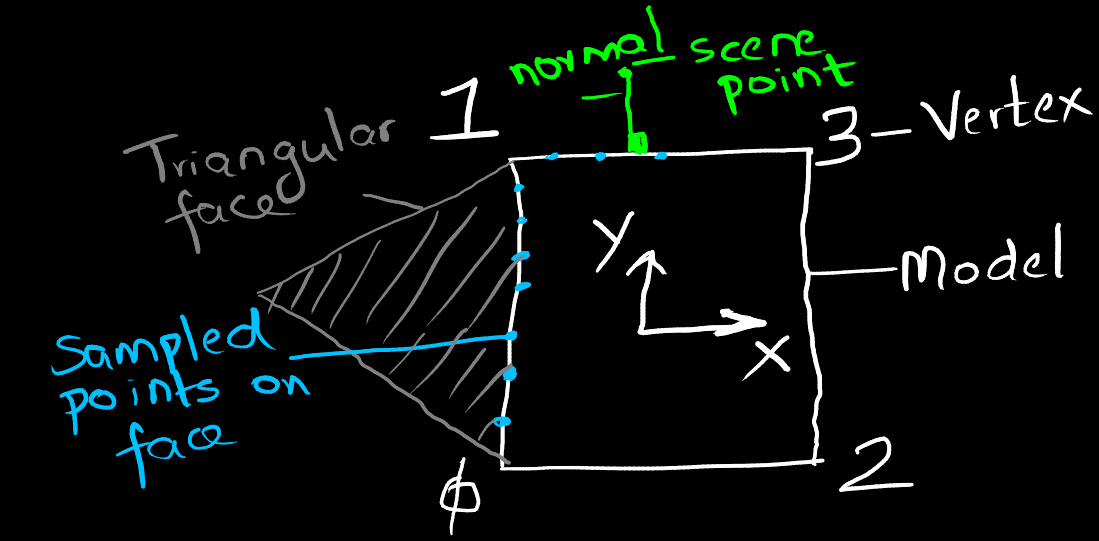 normal
scene
point
1
3 - Vertex
Triangular
face
Y
Model
X
Sampled
points on
face
φ
2